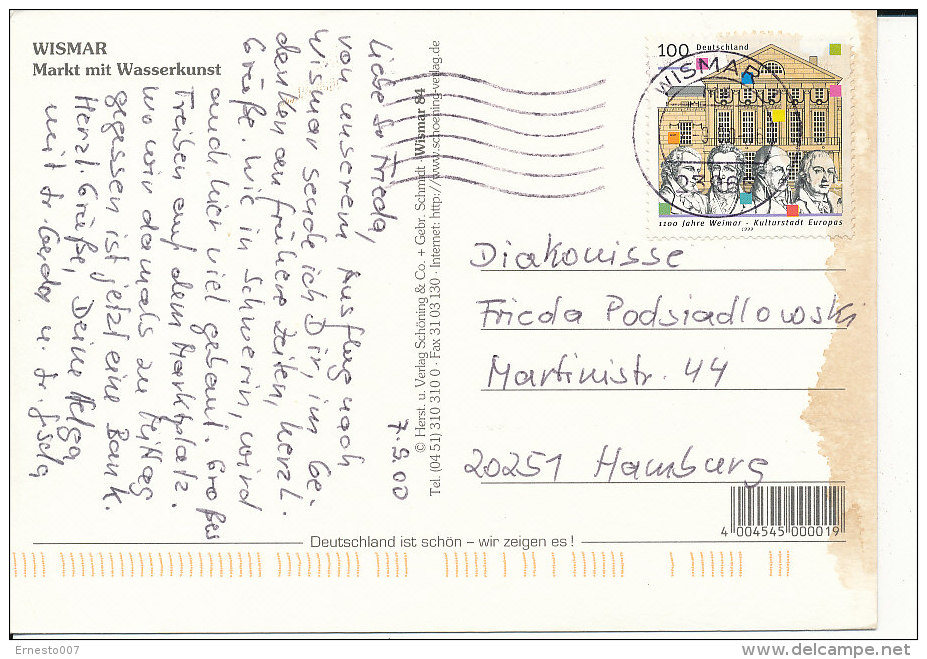 WISMAR
Markt mit Wasserkunst
7.9.00
Liebe Sr Frieda,
von unserem Ausflug nach
Wismar sende ich Dir, im Ge-
denken an frühere Zeiten, herzl.
Grüße. Wie in Schwerin, wird
auch hier viel gebaut. Großes
Treiben auf dem Marktplatz.
Wo wir damals zu Mittag
gegessen ist jetzt eine Bank.
Herzl. Grüße, Deine Helga
mit Sr. Gerda u. Sr. Gisela
© Herst. u. Verlag Schöning & Co. + Gebr. Schmidt · Wismar 84
Tel. (04 51) 310 310 0 · Fax 31 03 130 · Internet: http://www.schoening-verlag.de
100 Deutschland
WISMAR
1100 Jahre Weimar - Kulturstadt Europas
1999
Diakonisse
Frieda Podsiadlowski
Martinistr. 44
20251 Hamburg
4 004545 000019
Deutschland ist schön – wir zeigen es !
Ernesto007
delcampe.net